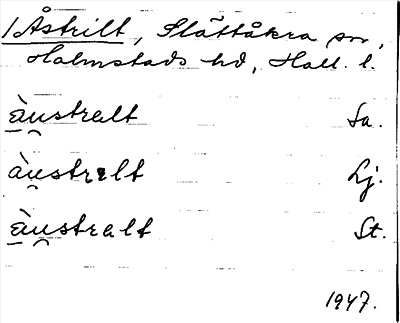 1 Åstrilt, Slättåkra sn,
Halmstads hd, Hall. l.
àu̯stralt Sa.
àu̯strɩlt Lj.
àu̯stralt St.
1947.